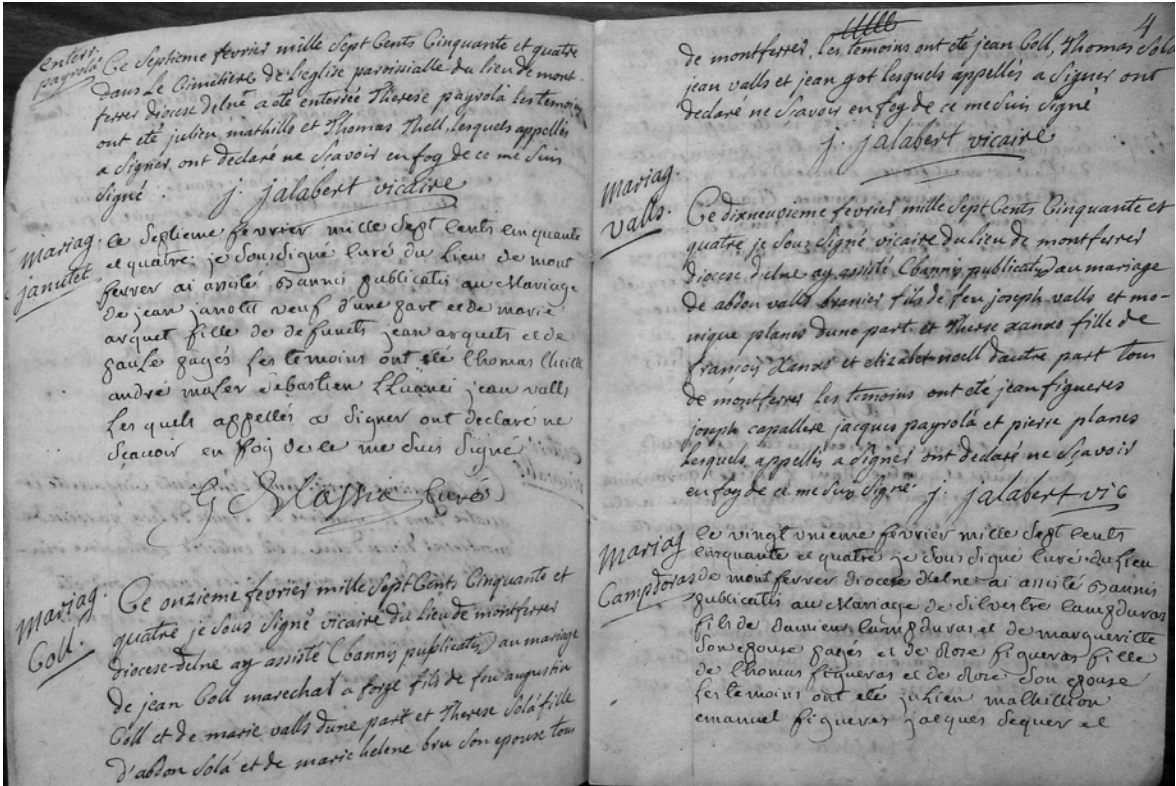 enterr.
payrolá
Ce Septieme fevrier mille Sept Cents Cinquante et quatre
dans Le Cimetiere de l'eglise paroissialle du lieu de mont-
ferrer diocese delne a eté enterrée Therese payrolá les temoins
ont eté julien mathillo et Thomas Thell, lesquels appellés
a signer ont declaré ne scavoir en foy de ce me suis
signé j. jalabert vicaire
mariag.
janutet
le septieme fevrier mille sept cents cinquante
et quatre je sous signé curé du Lieu de mont
ferrer ai assisté bannis publicatis au Mariage
de jean janotu veuf d'une part et de marie
arquet fille de defunts jean arquets et de
paule pagés les temoins ont eté thomas theille
andré maler sebastien LLuanei jean valls
Les quels appellés a signer ont declaré ne
scavoir en foy de ce me suis signé
G Massia curé
mariag.
Coll.
Ce onzieme fevrier mille Sept Cents Cinquante et
quatre je sous signé vicaire du Lieu de montferrer
diocese delne ay assisté (bannis puplicatis) au mariage
de jean Coll marechal a forge fils de feu augustin
Coll et de marie valls dune part et Therese Solá fille
d'abdon Solá et de marie helene bru son epouse tous
4
de montferrer, les temoins ont eté jean Coll, Thomas Sola
jean valls et jean got lesquels appellés a signer ont
declaré ne scavoir en foy de ce me suis signé
j. jalabert vicaire
mariag.
valls.
Ce dixneuvieme fevrier mille Sept Cents Cinquante et
quatre je sous signé vicaire du lieu de montferrer
diocese d'elne ay assisté (bannis publicatis) au mariage
de abdon valls branier fils de feu joseph valls et mo-
nique planes dune part et Therese xanxo fille de
françois Xanxo et elizabet noell d'autre part tous
de montferrer les temoins ont eté jean figueres
joseph capallere jacques payrolá et pierre planes
lesquels appellés a signer ont declaré ne scavoir
en foy de ce me suis signé j. jalabert vic
mariag
Campdoras
le vingt unieme fevrier mille sept cents
cinquante et quatre je sous signé curé du lieu
de montferrer diocese d'elne ai assisté bannis
publicatis au Mariage de silvestre campduras
fils de damien campduras et de margueritte
son epouse pages et de Rose figueras fille
de thomas figueras et de Rose son epouse
les temoins ont eté julien mathillion
emanuel figueras jacques sequer et